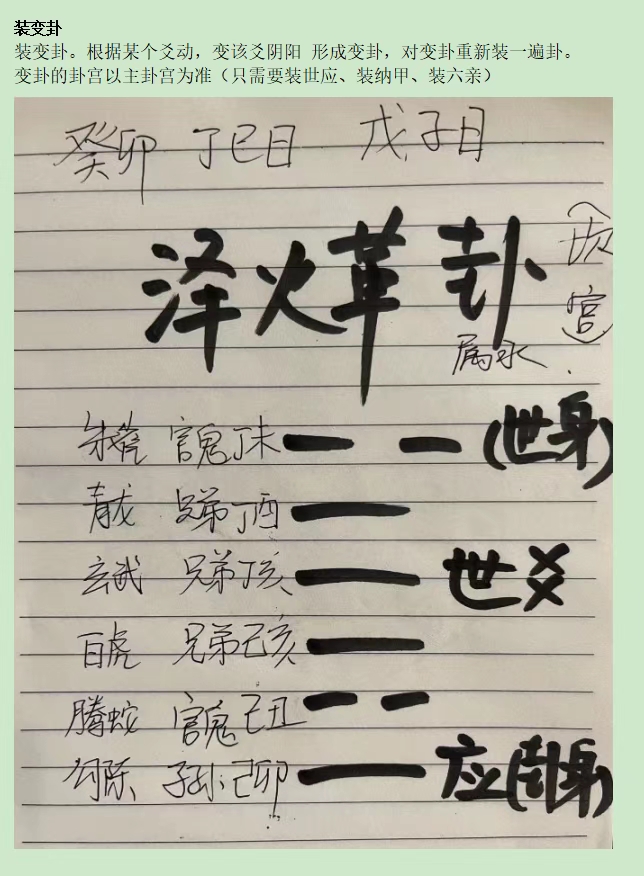 装变卦
装变卦。根据某个爻动，变该爻阴阳 形成变卦，对变卦重新装一遍卦。
变卦的卦宫以主卦宫为准（只需要装世应、装纳甲、装六亲）
癸卯 丁巳日 戊子日
泽火革卦 (坎宫)
属水
朱雀 官鬼丁未 (世身)
青龙 兄弟丁酉
玄武 兄弟丁亥 世爻
白虎 兄弟己亥
腾蛇 官鬼己丑
勾陈 子孙己卯 应(卦身)